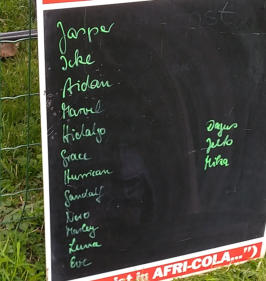 Jasper
Icke
Aidan
Marvel
Hidalgo
Grace
Hurrican
Gandalf
Nero
Marley
Luna
Eve
Mitra
in AFRI-COLA...")